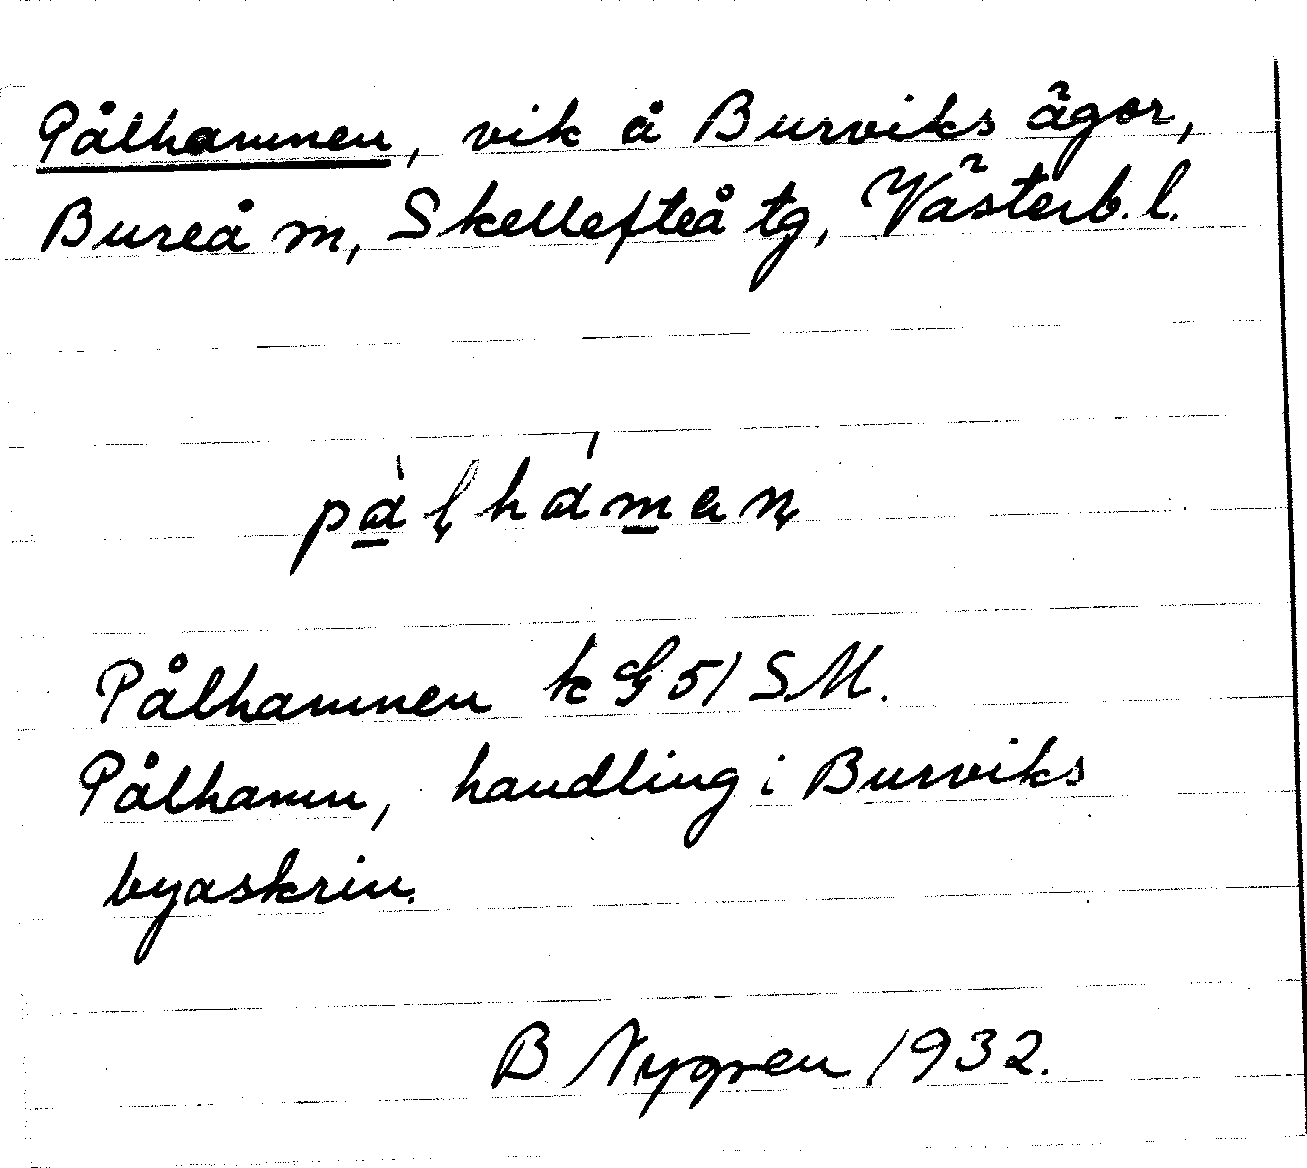 Pålhamnen, vik å Burviks ägor,
Bureå sn, Skellefteå tg, Västerb. l.
pàlháman
Pålhamnen k G 51 SM.
Pålhamn, handling i Burviks
byaskrin.
B Nygren 1932.